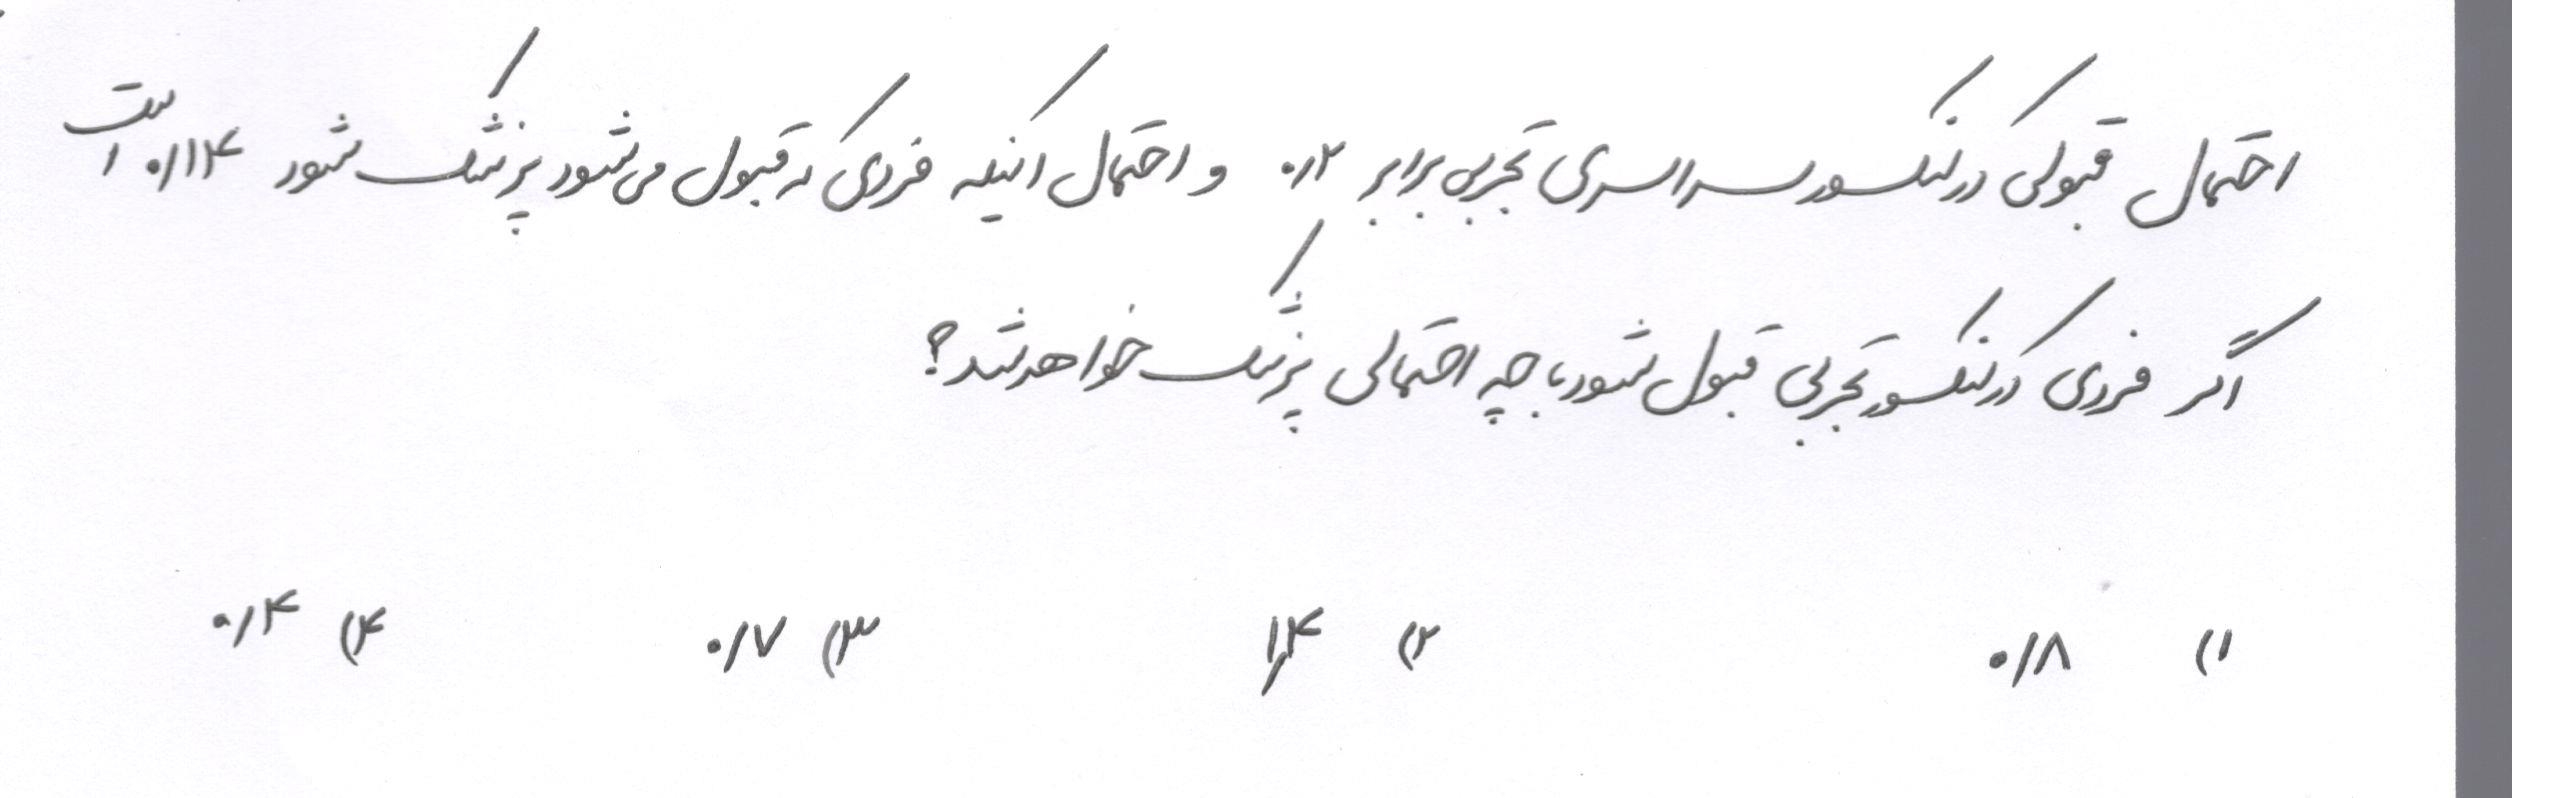 احتمال قبولی در کنکور سراسری تجربی برابر ۰/۲ و احتمال اینکه فردی که قبول می‌شود پزشک شود ۰/۱۴ است
اگر فردی در کنکور تجربی قبول شود، با چه احتمالی پزشک خواهد شد؟
۱) ۰/۸ ۲) ۱/۴ ۳) ۰/۷ ۴) ۰/۴